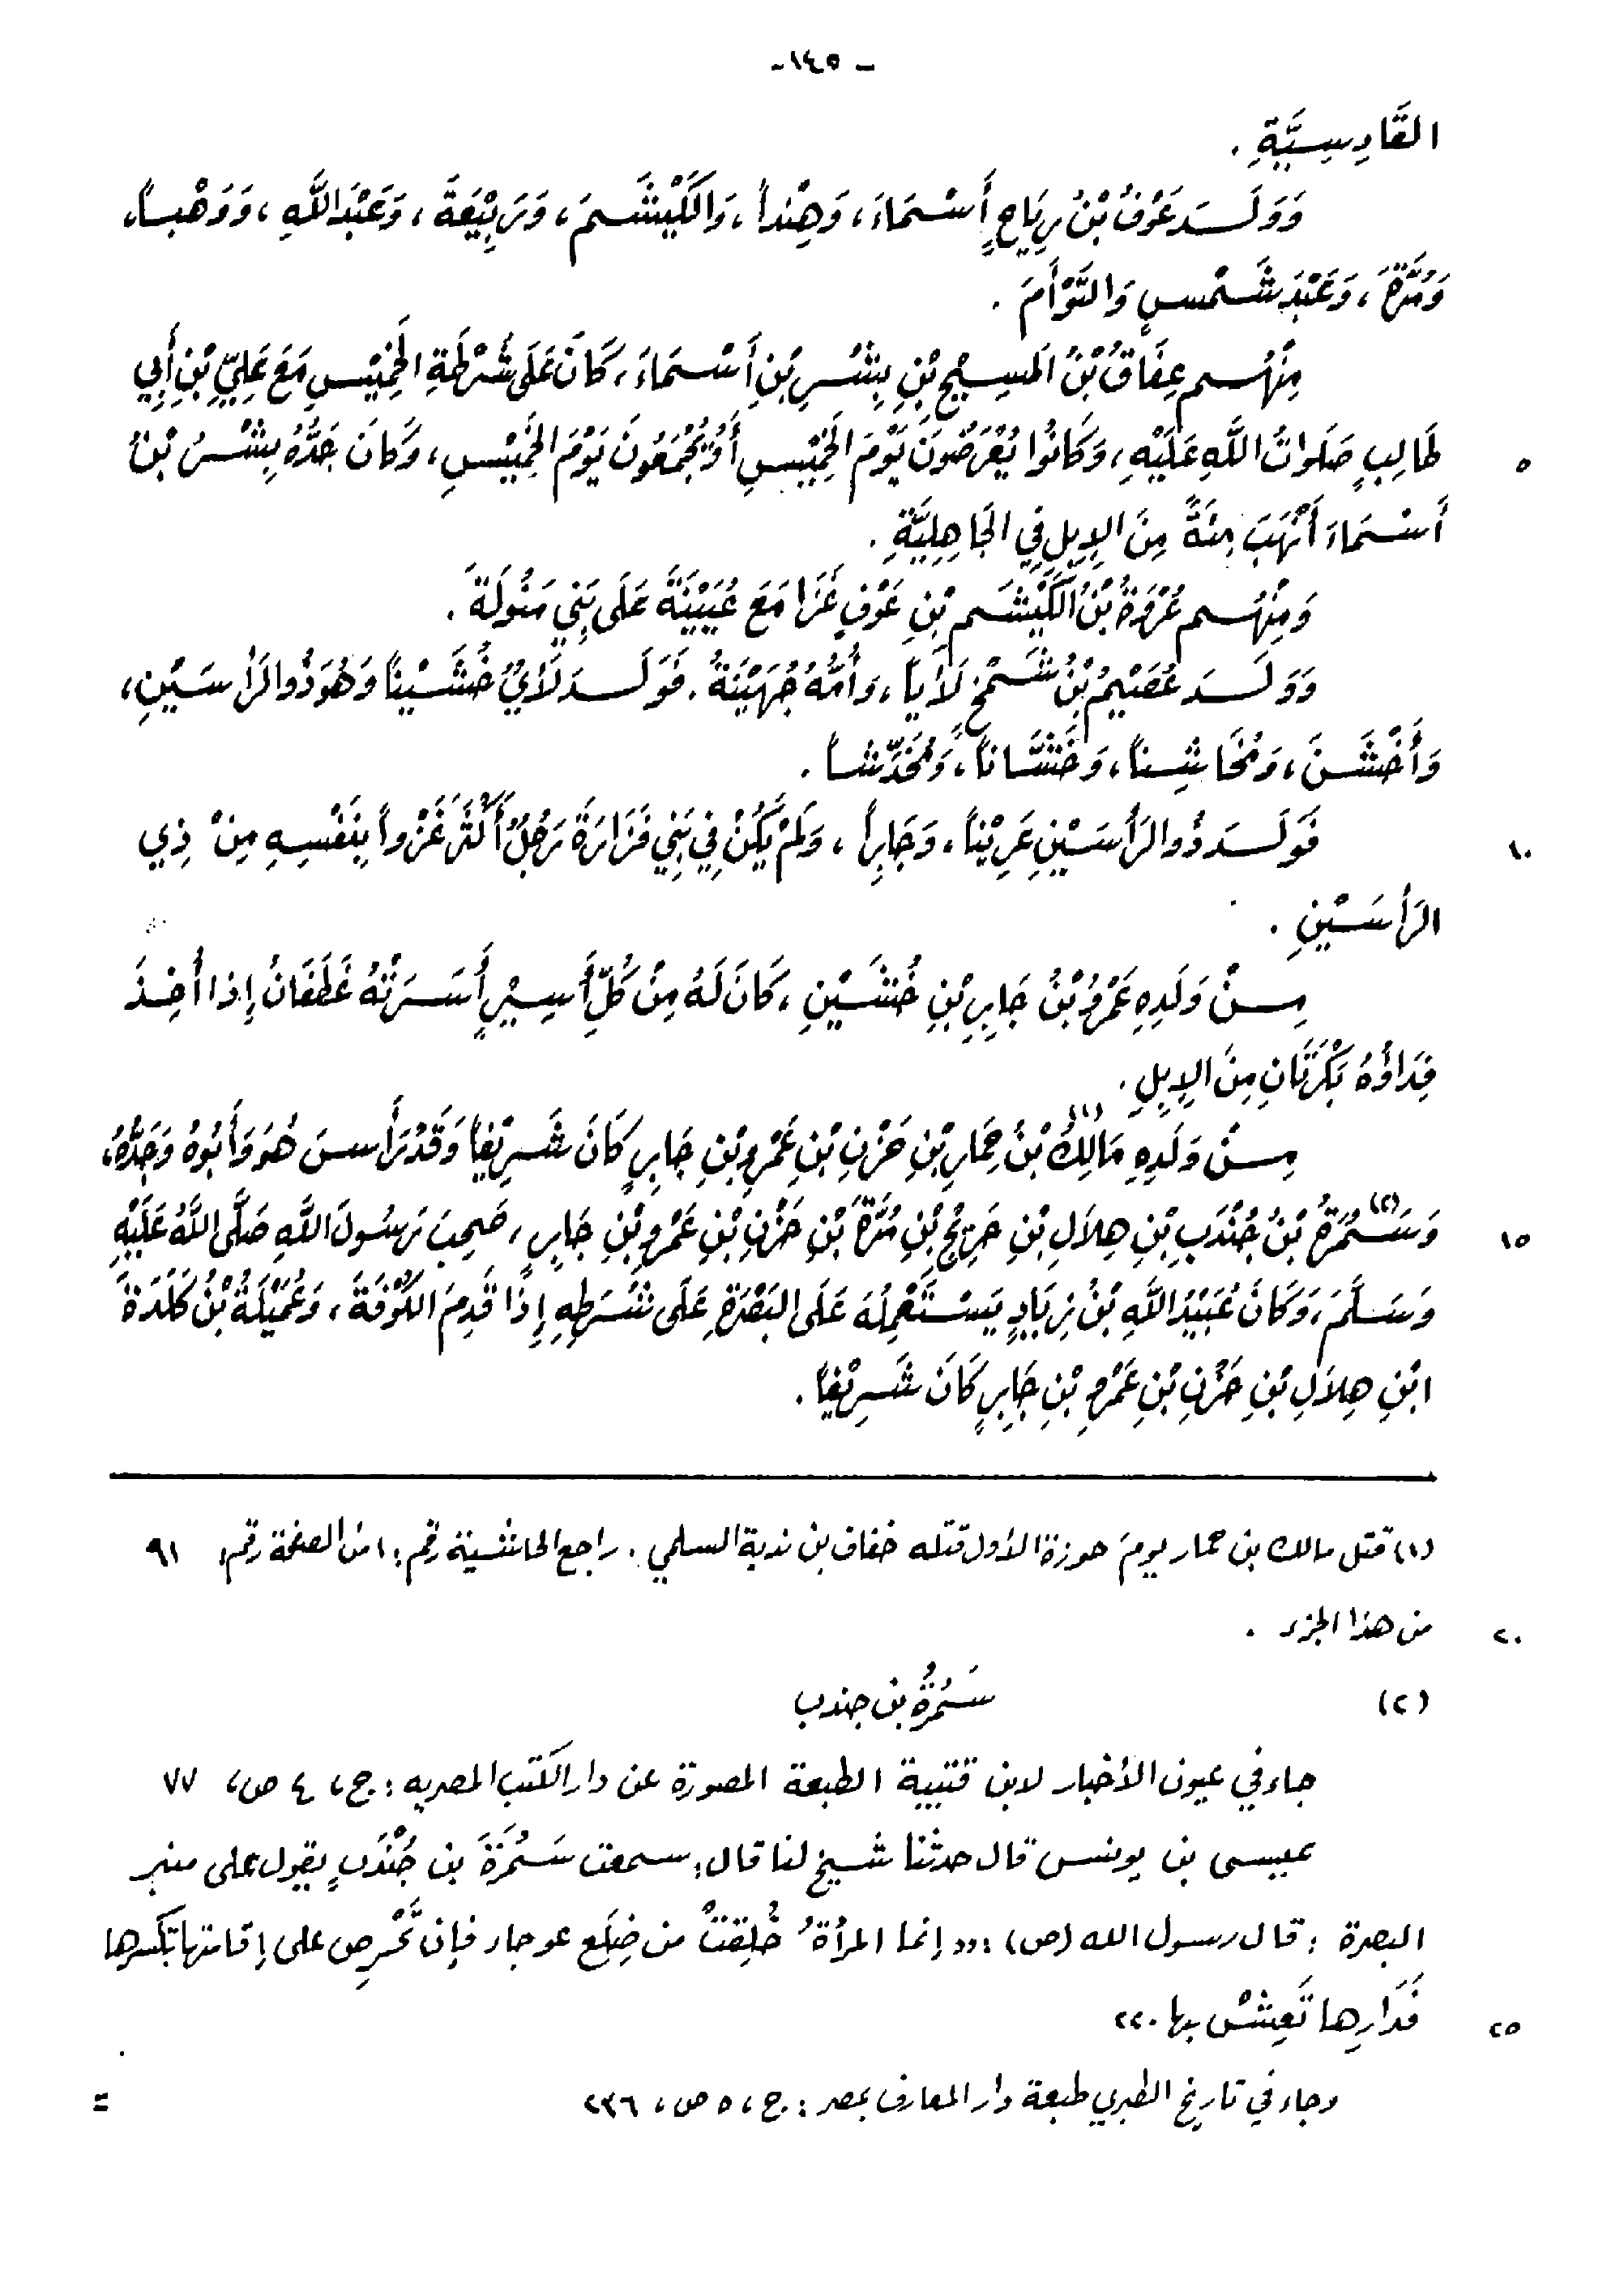 - ٥٤١ -
القَادِسِيَّةِ .
وَوَلَـدَ عَوْفُ بْنُ رِيَاحٍ أَسْمَاءَ، وَهِنْداً، وَالكَيْشَمَ، وَرَبِيْعَةَ، وَعَبْدَ اللَّهِ، وَوَهْباً،
وَمُرَّةَ، وَعَبْدَ شَمْسٍ وَالتَّوْأَمَ .
مِنْهُـم عِفَاقُ بْنُ المَسِيْحِ بْنِ بِشْرِ بْنِ أَسْمَاءَ، كَانَ عَلَى شُرْطَةِ الخَمِيْسِ مَعَ عَلِيِّ بْنِ أَبِي
طَالِبٍ صَلَوَاتُ اللَّهِ عَلَيْهِ، وَكَانُوا يُعْرَضُونَ يَوْمَ الخَمِيْسِ أَوْ يُجْمَعُونَ يَوْمَ الخَمِيْسِ، وَكَانَ جَدُّهُ بِشْرُ بْنُ ٥
أَسْمَاءَ أَنْهَبَ مِئَةً مِنَ الإِبِلِ فِي الجَاهِلِيَّةِ .
وَمِنْهُـم عُرْوَةُ بْنُ الكَيْشَمِ بْنِ عَوْفٍ غَزَا مَعَ عُيَيْنَةَ عَلَى بَنِي مَثُولَةَ .
وَوَلَـدَ عُصَيْمُ بْنُ شَمْخٍ لَأْياً، وَأُمُّهُ جُهَيْنَةُ . فَوَلَـدَ لَأْيٌ خُشَيْناً وَهُوَ ذُو الرَّأْسَيْنِ،
وَأَخْشَنَ، وَمُخَاشِناً، وَخَشَّاناً، وَمُخَدِّشاً .
فَوَلَـدَ ذُو الرَّأْسَيْنِ عَرِيْناً، وَجَابِراً، وَلَمْ يَكُنْ فِي بَنِي فَزَارَةَ رَجُلٌ أَكْثَرَ غَزْواً بِنَفْسِهِ مِنْ ذِي ١٠
الرَّأْسَيْنِ .
مِـنْ وَلَدِهِ عَمْرُو بْنُ جَابِرِ بْنِ خُشَيْنٍ، كَانَ لَهُ مِنْ كُلِّ أَسِيْرٍ أَسَرَتْهُ غَطَفَانُ إِذَا أُخِذَ
فِدَاؤُهُ بَكْرَتَانِ مِنَ الإِبِلِ .
مِـنْ وَلَدِهِ مَالِكُ (١) بْنُ حِمَارِ بْنِ حَزْنِ بْنِ عَمْرِو بْنِ جَابِرٍ كَانَ شَرِيْفاً وَقَدْ رَأَسَ هُوَ وَأَبُوهُ وَجَدُّهُ،
وَسَمُرَةُ (٢) بْنُ جُنْدَبِ بْنِ هِلَالِ بْنِ حَرِيْجِ بْنِ مُرَّةَ بْنِ حَزْنِ بْنِ عَمْرِو بْنِ جَابِرٍ، صَحِبَ رَسُولَ اللَّهِ صَلَّى اللَّهُ عَلَيْهِ ١٥
وَسَلَّمَ، وَكَانَ عُبَيْدُ اللَّهِ بْنُ زِيَادٍ يَسْتَعْمِلُهُ عَلَى البَصْرَةِ عَلَى شُرَطِهِ إِذَا قَدِمَ الكُوْفَةَ، وَعُمَيْلَةُ بْنُ كَلَدَةَ
ابْنِ هِلَالِ بْنِ حَزْنِ بْنِ عَمْرِو بْنِ جَابِرٍ كَانَ شَرِيْفاً .
(١) قتل مالك بن حمار يوم حوزة الأول قتله خفاف بن ندبة السلمي . راجع الحاشية رقم: ١ من الصفحة رقم: ٩١
من هذا الجزء . ٢٠
(٢) سَمُرَةُ بن جندب
جاء في عيون الأخبار لابن قتيبة الطبعة المصورة عن دار الكتب المصريه : ج، ٤ ص، ٧٧
عيسى بن يونس قال حدثنا شيخ لنا قال: سمعت سَمُرَةَ بن جُنْدَبٍ يقول على منبر
البصرة : قال رسول الله (ص) : "إنما المرأةُ خُلِقتْ من ضِلَع عوجاء فإن تَحْرِص على إقامتها تكسرها
فَدَارِها تَعِشْ بها ." ٢٥
وجاء في تاريخ الطبري طبعة دار المعارف بمصر : ج، ٥ ص، ٢٣٦ =